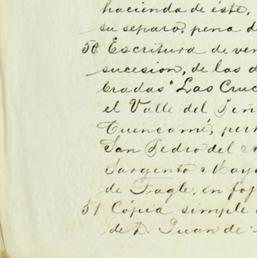 hacienda de éste,
su separo, pena d
50 Escritura de ven
sucesion, de las d
bradas "Las Cruc
el Valle del Peñ
Cuencamé, per
San Pedro del
Sargento Mayo
de Tagle, en foj
51 Cópia simple
de D. Juan de